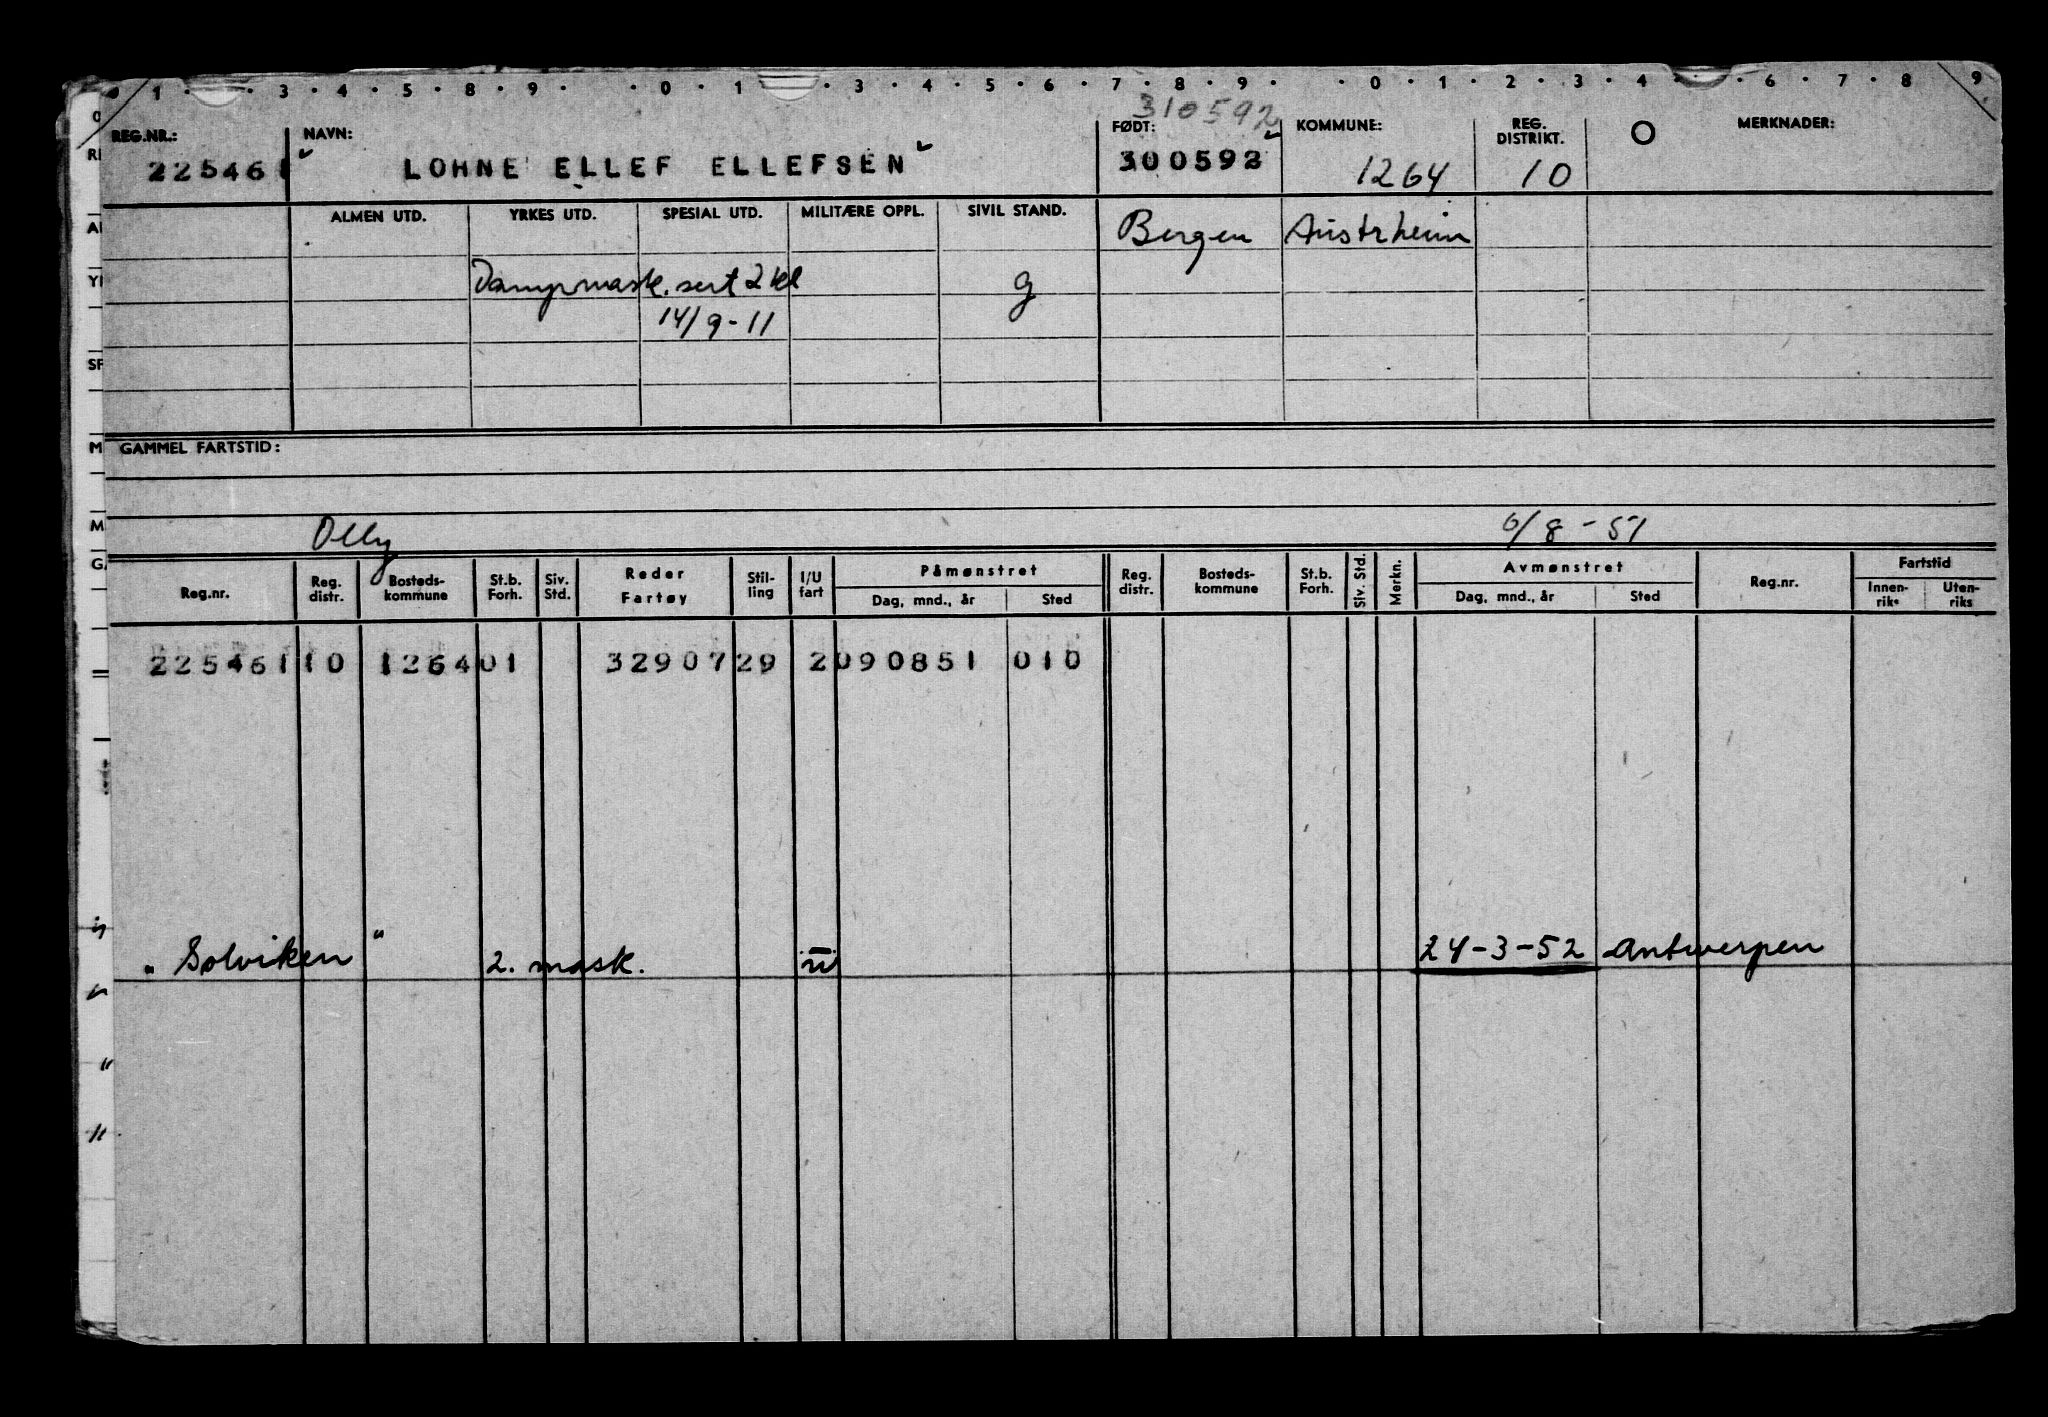 1 · · 3 · 4 · 5 · 8 · 9 · · 0 · 1 · 3 · 4 · 5 · 6 · 7 · 8 · 9 · · 0 · 1 · 2 · 3 · 4 · · 6 · 7 · 8 9
310592
REG.NR.: NAVN: FØDT: KOMMUNE: REG. DISTRIKT. MERKNADER:
225461 LOHNE ELLEF ELLEFSEN 300592 1264 10
ALMEN UTD. YRKES UTD. SPESIAL UTD. MILITÆRE OPPL. SIVIL STAND. Bergen Austrheim
Dampmask. sert 2 kl g
14/9-11
GAMMEL FARTSTID:
Olly 6/8-51
Reg.nr. Reg. distr. Bosteds- kommune St.b. Forh. Siv. Std. Reder Fartøy Stil- ling I/U fart Påmønstret Dag, mnd., år Sted Reg. distr. Bosteds- kommune St.b. Forh. Siv. Std. Merkn. Avmønstret Dag, mnd., år Sted Reg.nr. Fartstid Innen- riks Uten- riks
225461 10 1264 01 32907 29 2 090851 010
"Solviken" 2. mask. u 24-3-52 Antwerpen